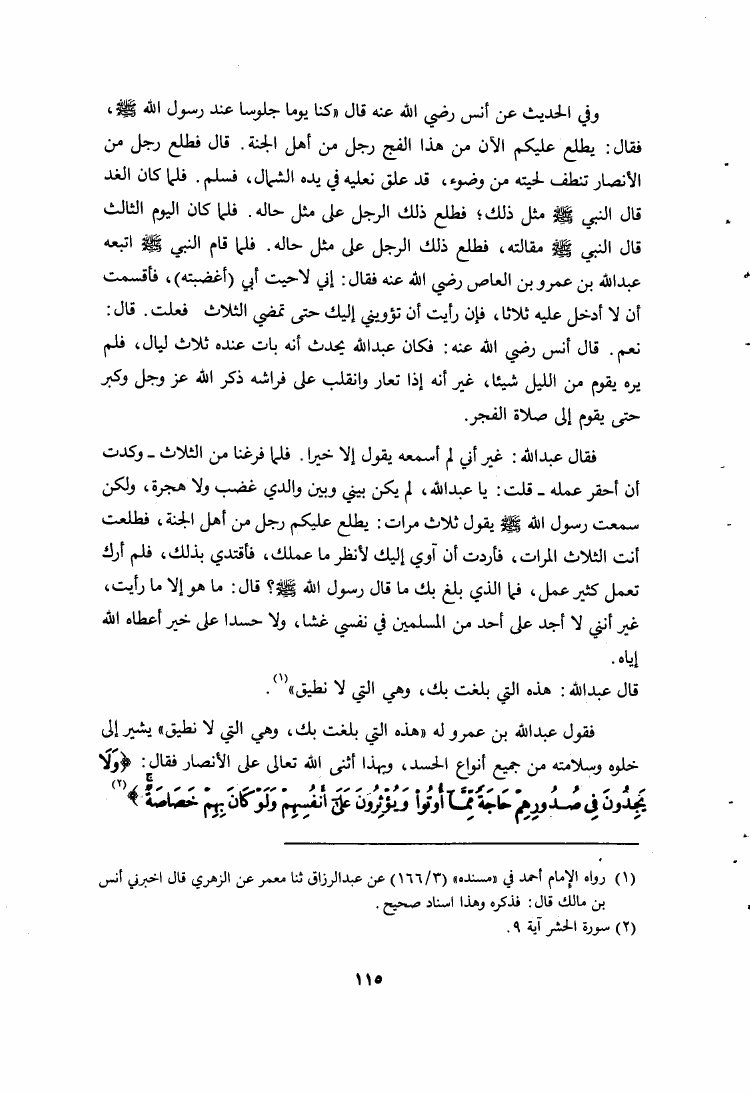 وفي الحديث عن أنس رضي الله عنه قال «كنا يوما جلوسا عند رسول الله ﷺ،
فقال: يطلع عليكم الآن من هذا الفج رجل من أهل الجنة. قال فطلع رجل من
الأنصار تنطف لحيته من وضوء، قد علق نعليه في يده الشمال، فسلم. فلما كان الغد
قال النبي ﷺ مثل ذلك؛ فطلع ذلك الرجل على مثل حاله. فلما كان اليوم الثالث
قال النبي ﷺ مقالته، فطلع ذلك الرجل على مثل حاله. فلما قام النبي ﷺ اتبعه
عبدالله بن عمرو بن العاص رضي الله عنه فقال: إني لاحيت أبي (أغضبته)، فأقسمت
أن لا أدخل عليه ثلاثا، فإن رأيت أن تؤويني إليك حتى تمضي الثلاث فعلت. قال:
نعم. قال أنس رضي الله عنه: فكان عبدالله يحدث أنه بات عنده ثلاث ليال، فلم
يره يقوم من الليل شيئا، غير أنه إذا تعار وانقلب على فراشه ذكر الله عز وجل وكبر
حتى يقوم إلى صلاة الفجر.
فقال عبدالله: غير أني لم أسمعه يقول إلا خيرا. فلما فرغنا من الثلاث ـ وكدت
أن أحقر عمله ـ قلت: يا عبدالله، لم يكن بيني وبين والدي غضب ولا هجرة، ولكن
سمعت رسول الله ﷺ يقول ثلاث مرات: يطلع عليكم رجل من أهل الجنة، فطلعت
أنت الثلاث المرات، فأردت أن آوي إليك لأنظر ما عملك، فأقتدي بذلك، فلم أرك
تعمل كثير عمل، فما الذي بلغ بك ما قال رسول الله ﷺ؟ قال: ما هو إلا ما رأيت،
غير أنني لا أجد على أحد من المسلمين في نفسي غشا، ولا حسدا على خير أعطاه الله
إياه.
قال عبدالله: هذه التي بلغت بك، وهي التي لا نطيق»(١).
فقول عبدالله بن عمرو له «هذه التي بلغت بك، وهي التي لا نطيق» يشير إلى
خلوه وسلامته من جميع أنواع الحسد، وبهذا أثنى الله تعالى على الأنصار فقال: ﴿وَلَا
يَجِدُونَ فِي صُدُورِهِمْ حَاجَةً مِّمَّا أُوتُوا وَيُؤْثِرُونَ عَلَىٰ أَنفُسِهِمْ وَلَوْ كَانَ بِهِمْ خَصَاصَةٌ﴾(٢)
(١) رواه الإمام أحمد في «مسنده» (١٦٦/٣) عن عبدالرزاق ثنا معمر عن الزهري قال اخبرني أنس
بن مالك قال: فذكره وهذا اسناد صحيح.
(٢) سورة الحشر آية ٩.
١١٥